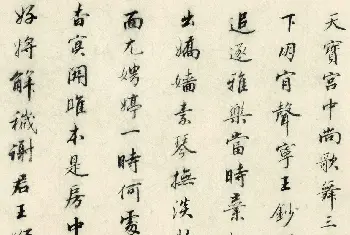 天寶宮中尚歌舞三
下明宵聲寧王鈔
追逐雅樂當時棄
出嬌嬙素琴撫淡
面尤娉婷一時何處
杳冥開唯本是房中
好將解穢謝君王